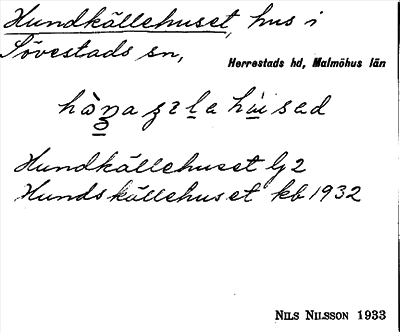 Hundkällehuset, hus i
Sövestads sn,
Herrestads hd, Malmöhus län
Hundkällehuset lj 2
Hundskällehuset kb 1932
NILS NILSSON 1933